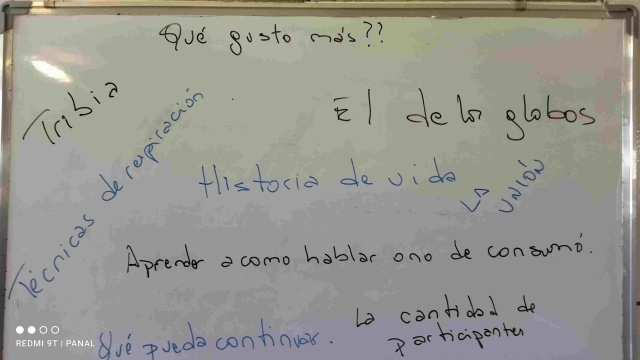 Qué gusto más??
Tribia
Técnicas de respiración
El de los globos
Historia de vida
La unión
Aprender acomo hablar ono de consumó.
Qué pueda continuar.
La cantidad de
participantes
REDMI 9T | PANAL